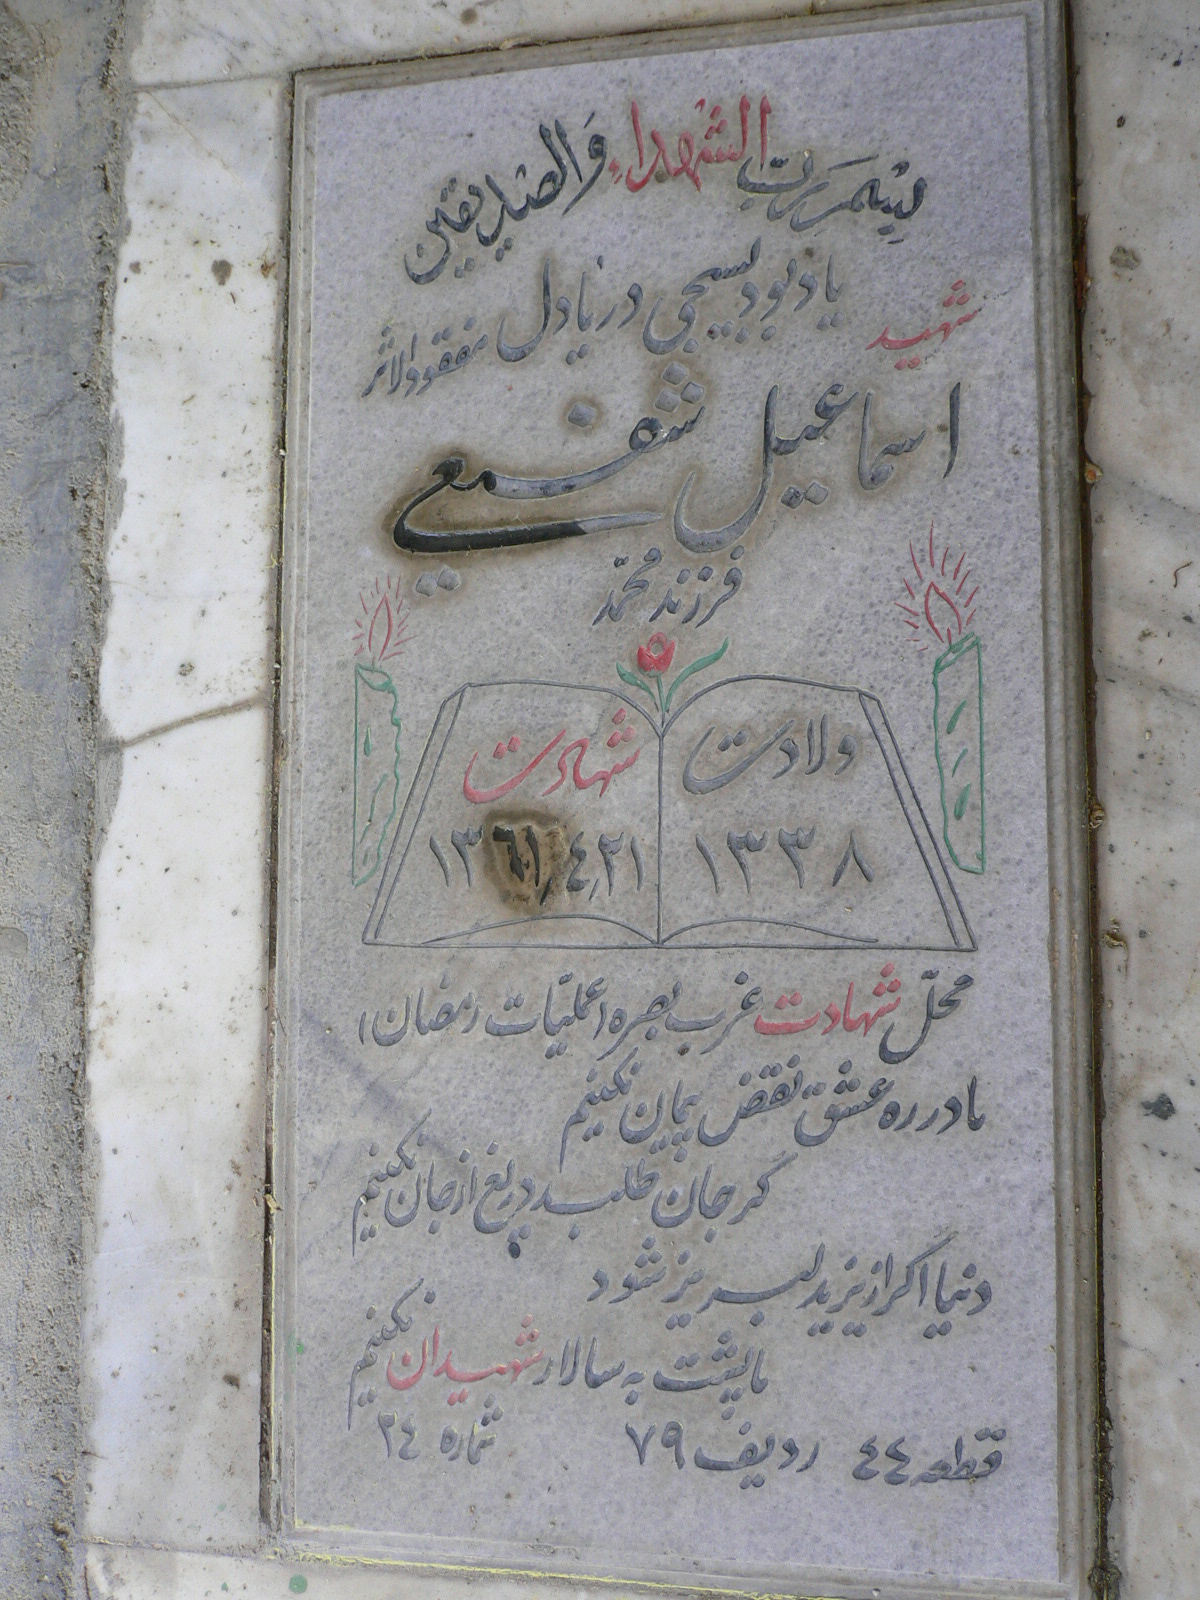 بسم رب الشهداء والصدیقین
یادبود بسیجی دریادل مفقودالاثر
شهید
اسماعیل شفیعی
فرزند محمد
ولادت شهادت
۱۳۳۸ ۱۳۶۱/٤/۲۱
محلّ شهادت غرب بصره (عملیّات رمضان)
ما در ره عشق نقض پیمان نکنیم
گر جان طلبد دریغ از جان نکنیم
دنیا اگر از یزید لبریز شود
ما پشت به سالار شهیدان نکنیم
قطعه ٤٤ ردیف ۷۹ شماره ۲٤